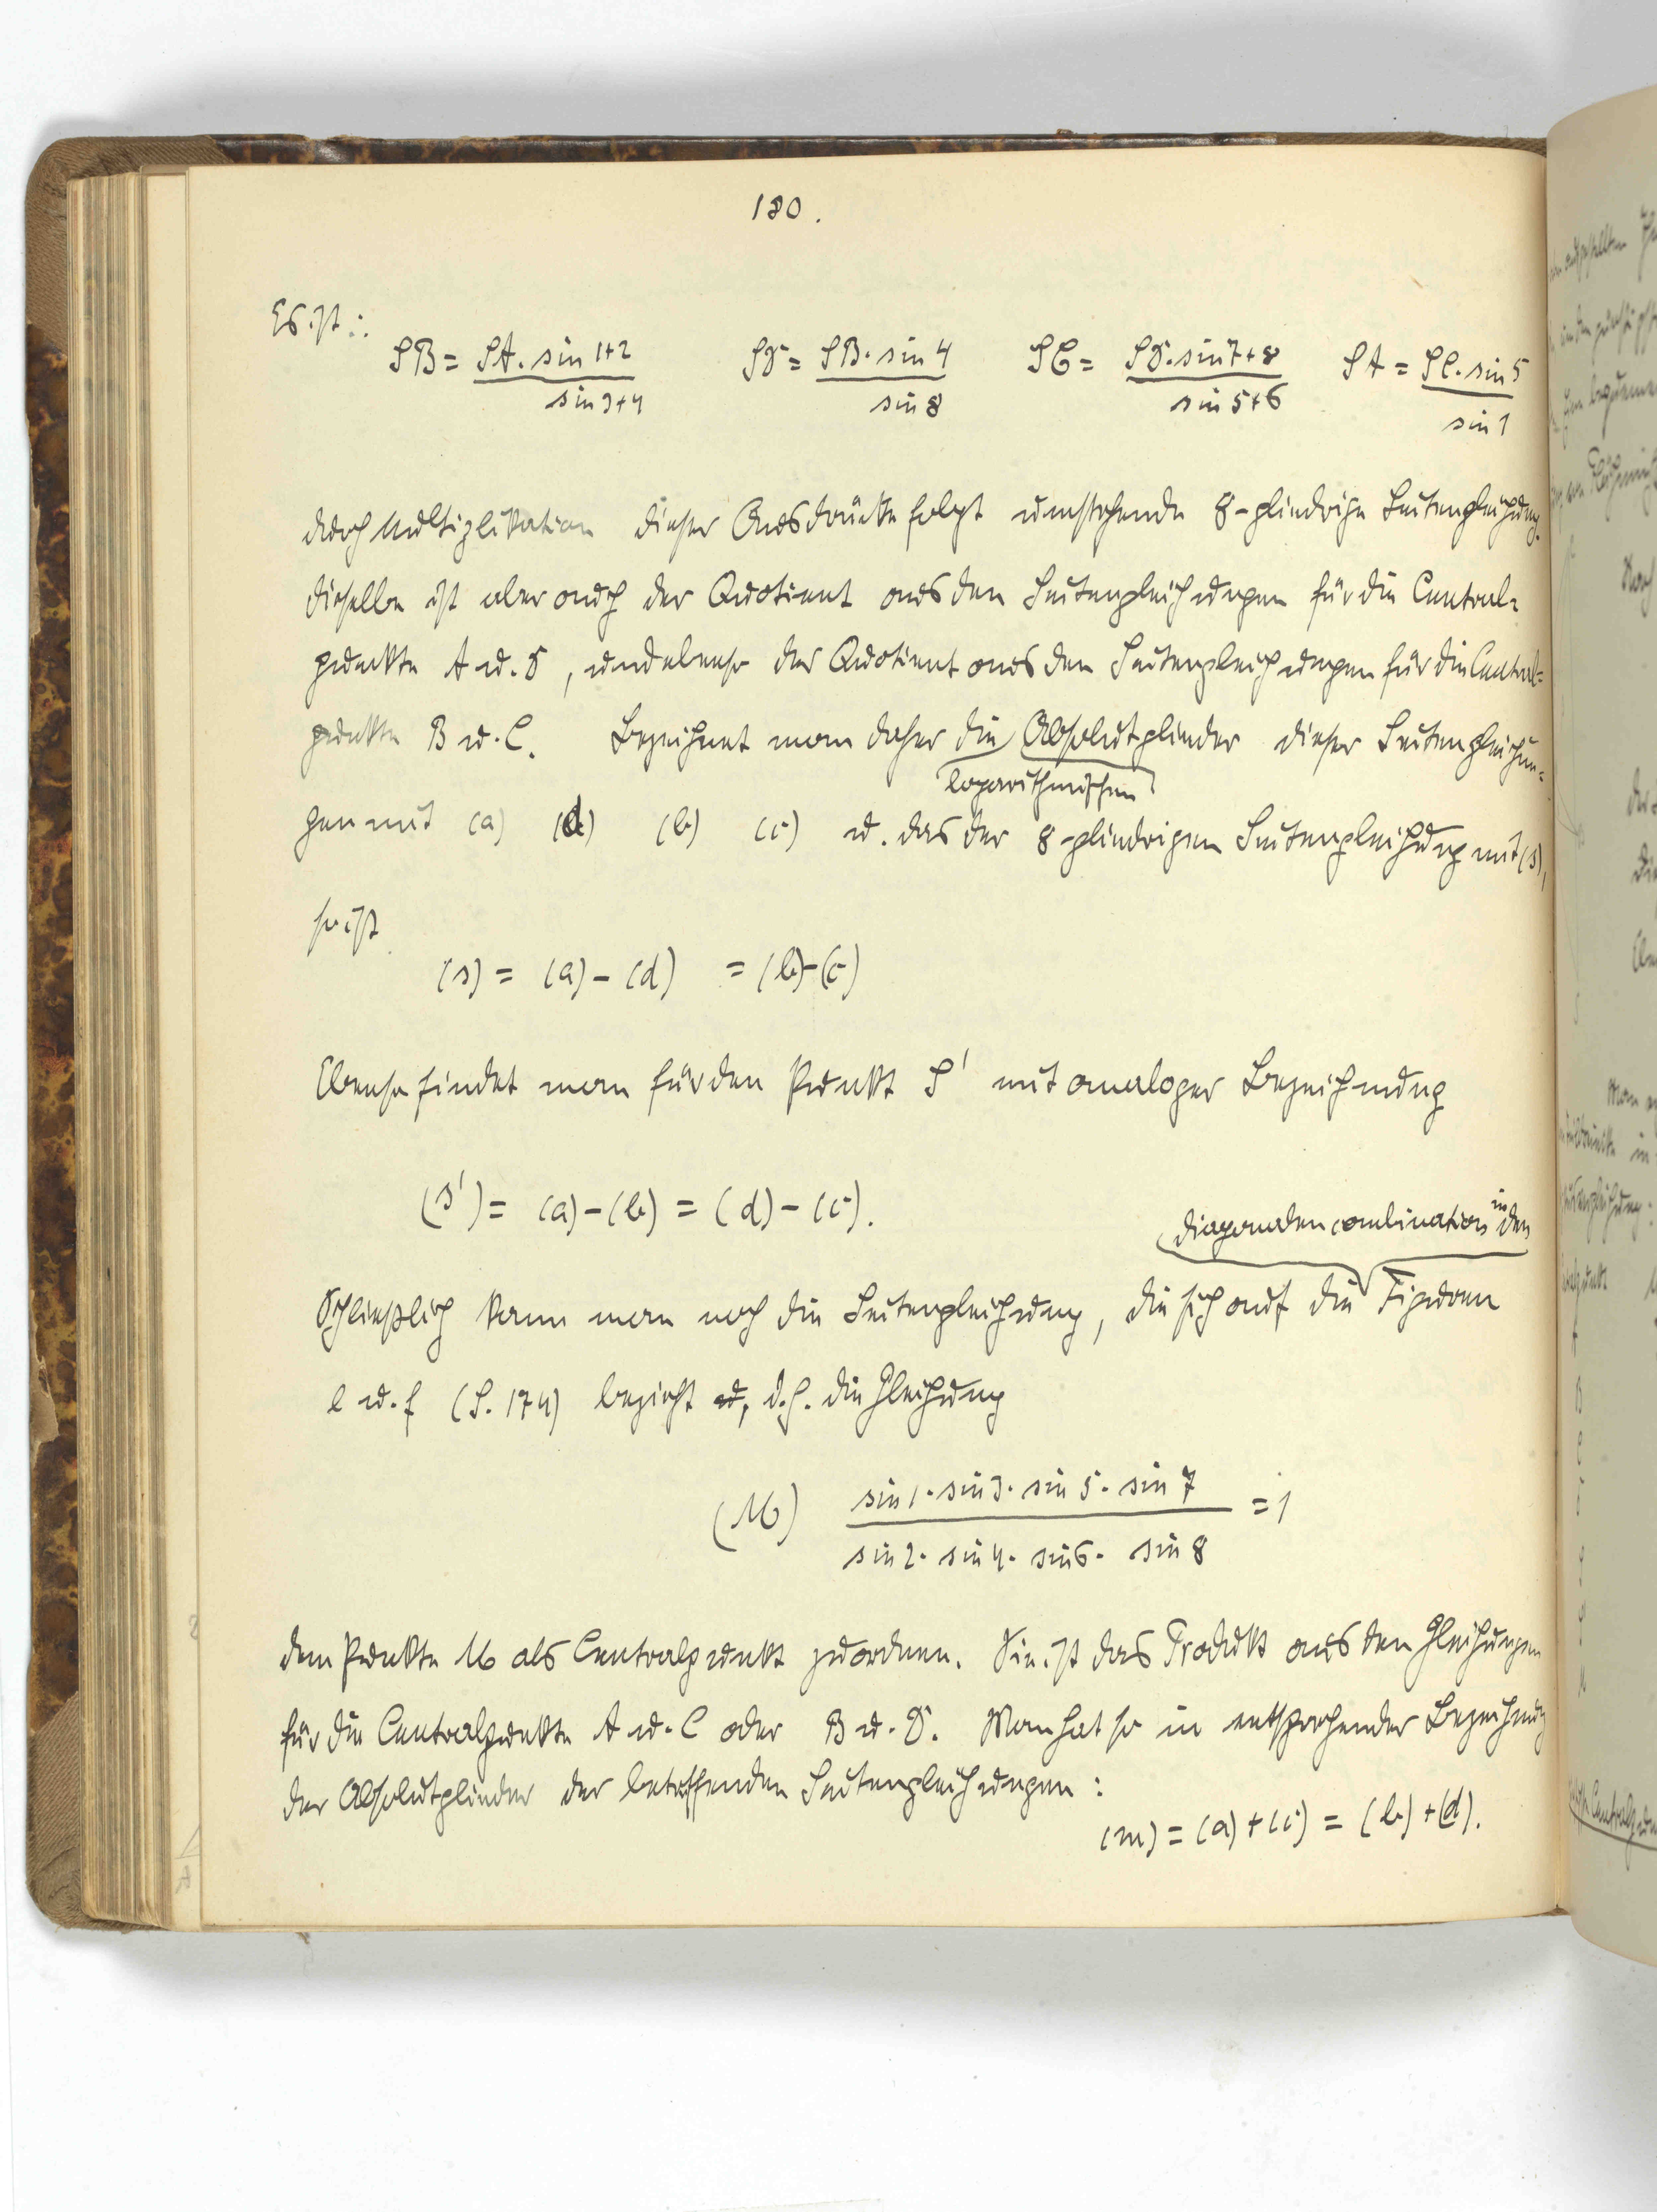 180.
Es ist:
SB = SA. sin 1+2 / sin 3+4   SD = SB. sin 4 / sin 8   SC = SD. sin 7+8 / sin 5+6   SA = SC. sin 5 / sin 1
durch Multiplikation dieser Ausdrücke folgt umstehende 8-gliedrige Seitengleichung.
dieselbe ist aber auch der Quotient aus den Seitengleichungen für die Central-
punkte A u. D, und ebenso der Quotient aus den Seitengleichungen für die Central-
punkte B u. C. Bezeichnet man daher die Absolutglieder dieser Seitengleichun-
logarithmischen
gen mit (a) (d) (b) (c) u. das der 8-gliedrigen Seitengleichung mit (s),
so ist
(s) = (a) - (d) = (b) - (c)
Ebenso findet man für den Punkt S' mit analoger Bezeichnung
(s') = (a) - (b) = (d) - (c).
Diagonalencombination in den
Schließlich kann man noch die Seitengleichung, die sich auf die Figuren
e u. f (S. 174) bezieht, d.h. die Gleichung
(M) sin 1. sin 3. sin 5. sin 7 / sin 2. sin 4. sin 6. sin 8 = 1
dem Punkte M als Centralpunkt zuordnen. Sie ist das Produkt aus den Gleichungen
für die Centralpunkte A u. C oder B u. D. Man hat so in entsprechender Bezeichnung
der Absolutglieder der betreffenden Seitengleichungen:
(m) = (a) + (c) = (b) + (d).